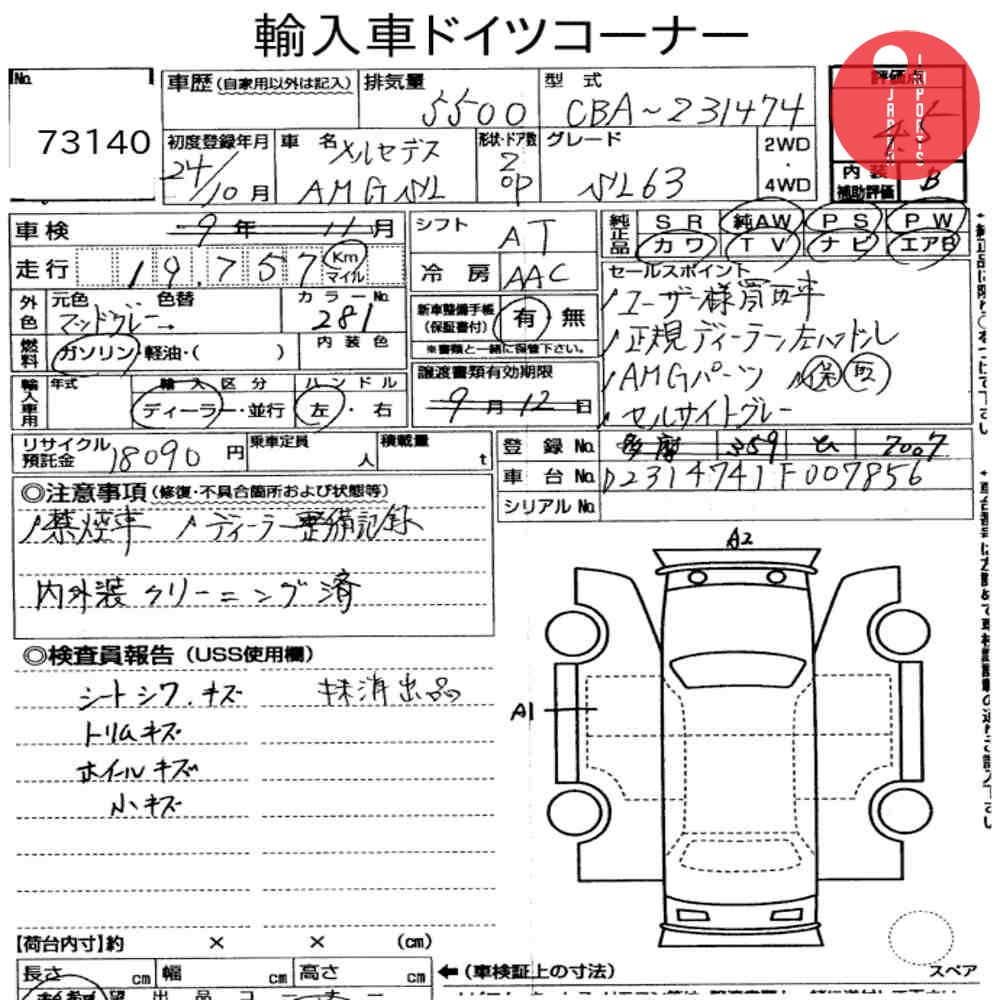 輸入車ドイツコーナー
No.
73140
車歴(自家用以外は記入)
排気量
5500
型式
CBA~231474
評価点
4.5
JAPAN IMPORTS
初度登録年月
24/10月
車名
メルセデス
AMG SL
形状・ドア数
2
OP
グレード
SL63
2WD
・
4WD
内装
補助評価
B
車検
9年 11月
シフト
AT
純正品
SR 純AW PS PW
カワ TV ナビ エアB
走行
19,757
Km
マイル
冷房
AAC
セールスポイント
ユーザー様買取車
正規ディーラー左ハンドル
AMGパーツ 保 取
セルサイトグレー
外色
元色 色替
マットグレー→
カラーNo.
281
新車整備手帳
(保証書付)
有・無
※書類と一緒に保管下さい。
燃料
ガソリン・軽油・( )
内装色
輸入車用
年式
輸入区分
ディーラー・並行
ハンドル
左・右
譲渡書類有効期限
9月12日
リサイクル
預託金
18090円
乗車定員
人
積載量
t
登録No.
多摩 359 せ 7007
車台No.
D2314741F007856
シリアルNo.
◎注意事項(修復・不具合箇所および状態等)
禁煙車 ディーラー整備記録
内外装クリーニング済
◎検査員報告(USS使用欄)
シートシワ.キズ 抹消出品
トリムキズ
ホイルキズ
小キズ
A2
A1
【荷台内寸】約 × × (cm)
長さ cm 幅 cm 高さ cm
←(車検証上の寸法)
スペア